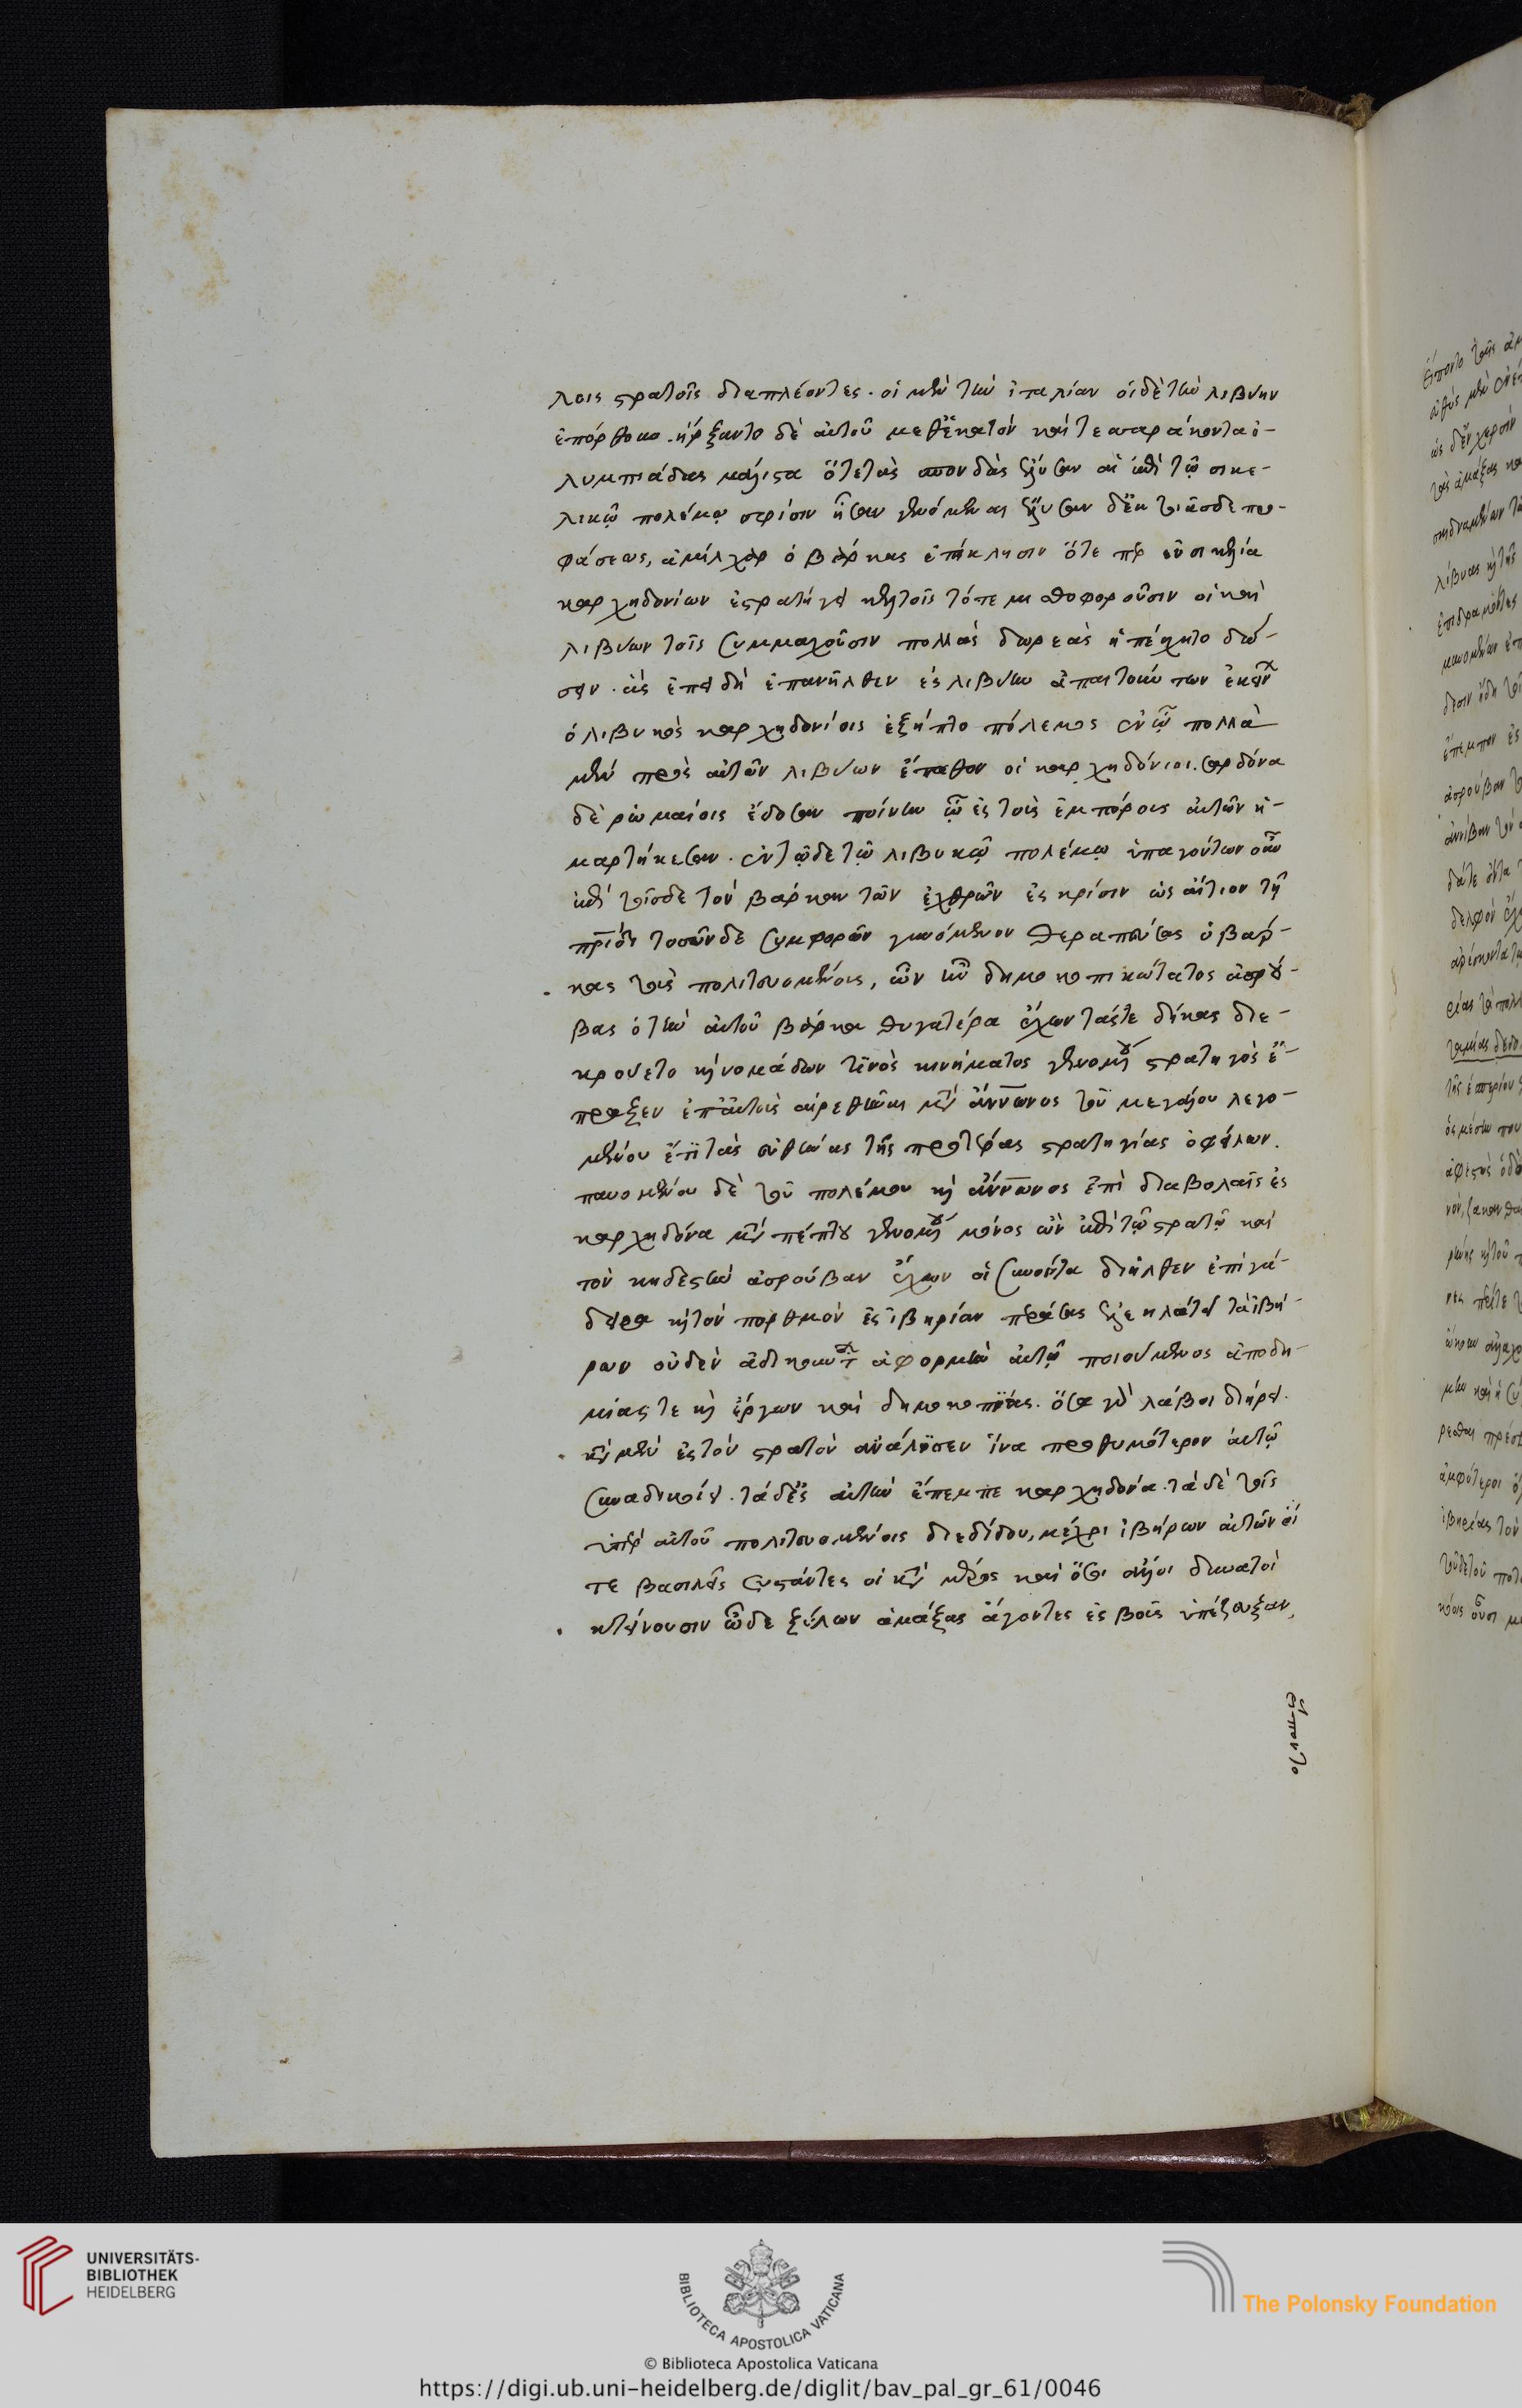 λοις στρατοῖς διαπλέοντες. οἱ μὲν τὴν ἰταλίαν οἱ δὲ τὴν λιβύην
ἐπόρθουν. ἤρξαντο δὲ αὐτοῦ μεθ' ἑκατὸν καὶ τεσσαράκοντα ὀ-
λυμπιάδας μάλιστα ὅτε τὰς σπονδὰς ἔλυσαν αἱ ἐπὶ τῷ σικε-
λικῷ πολέμῳ σφίσιν ἦσαν γενόμεναι ἔλυσαν δ' ἐκ τοιᾶσδε προ-
φάσεως, ἀμίλχαρ ὁ βάρκας ἐπίκλησιν ὅτε περ ἐν σικελία
καρχηδονίων ἐστρατήγει κελτοῖς τότε μισθοφοροῦσιν οἱ καὶ
λιβύων τοῖς συμμαχοῦσιν πολλὰς δωρεὰς ὑπέσχητο δώ-
σειν. ἃς ἐπειδὴ ἐπανῆλθεν ἐς λιβύην ἀπαιτούντων ἐκείνων
ὁ λιβυκὸς καρχηδονίοις ἐξῆπτο πόλεμος ἐν ᾧ πολλὰ
μὲν πρὸς αὐτῶν λιβύων ἔπαθον οἱ καρχηδόνιοι. σαρδόνα
δὲ ῥωμαίοις ἔδοσαν ποίνην ᾧ ἐς τοὺς ἐμπόρους αὐτῶν ἡ-
μαρτήκεσαν. ἐν τῷδε τῷ λιβυκῷ πολέμῳ ὑπαγόντων οὖν
ἐπὶ τοῖσδε τὸν βάρκαν τῶν ἐχθρῶν ἐς κρίσιν ὡς αἴτιον τῇ
πατρίδι τοσῶνδε συμφορῶν γενόμενον θεραπεύσας ὁ βάρ-
κας τοὺς πολιτευομένους, ὧν ἦν δημοκοπικώτατος ἀσρού-
βας ὁ τὴν αὐτοῦ βάρκα θυγατέρα ἔχων τάς τε δίκας διε-
κρούετο καὶ νομάδων τινὸς κινήματος γενομένου στρατηγὸς ἔ-
πραξεν ἐπ' αὐτοὺς αἱρεθῆναι μετ' ἄννωνος τοῦ μεγάλου λεγο-
μένου ἔτι τὰς εὐθύνας τῆς προτέρας στρατηγίας ὀφείλων.
παυομένου δὲ τοῦ πολέμου καὶ ἄννωνος ἐπὶ διαβολαῖς ἐς
καρχηδόνα μεταπέμπτου γενομένου μόνος ὢν ἐπὶ τῷ στρατῷ καὶ
τὸν κηδεστὴν ἀσρούβαν ἔχων οἱ συνόντα διῆλθεν ἐπὶ γά-
δειρα καὶ τὸν πορθμὸν ἐς ἰβηρίαν περάσας ἐλεηλάτει τὰ ἰβή-
ρων οὐδὲν ἀδικούντων ἀφορμὴν αὑτῷ ποιούμενος ἀποδη-
μίας τε καὶ ἔργων καὶ δημοκοπίας. ὅσα γὰρ λάβοι διῄρει.
καὶ τὰ μὲν ἐς τὸν στρατὸν ἀνάλισεν ἵνα προθυμότερον αὐτῷ
συναδικοίη. τὰ δ' ἐς αὐτὴν ἔπεμπε καρχηδόνα. τὰ δὲ τοῖς
ὑπὲρ αὐτοῦ πολιτευομένοις διεδίδου, μέχρι ἰβήρων αὐτὸν οἵ
τε βασιλεῖς συστάντες οἱ κατὰ μέρος καὶ ὅσοι ἄλλοι δυνατοὶ
κτείνουσιν ὧδε ξύλων ἁμάξας ἄγοντες ἐς βοῦς ὑπέζευξαν,
εἵποντο
UNIVERSITÄTS-
BIBLIOTHEK
HEIDELBERG
BIBLIOTECA APOSTOLICA VATICANA
© Biblioteca Apostolica Vaticana
The Polonsky Foundation
https://digi.ub.uni-heidelberg.de/diglit/bav_pal_gr_61/0046